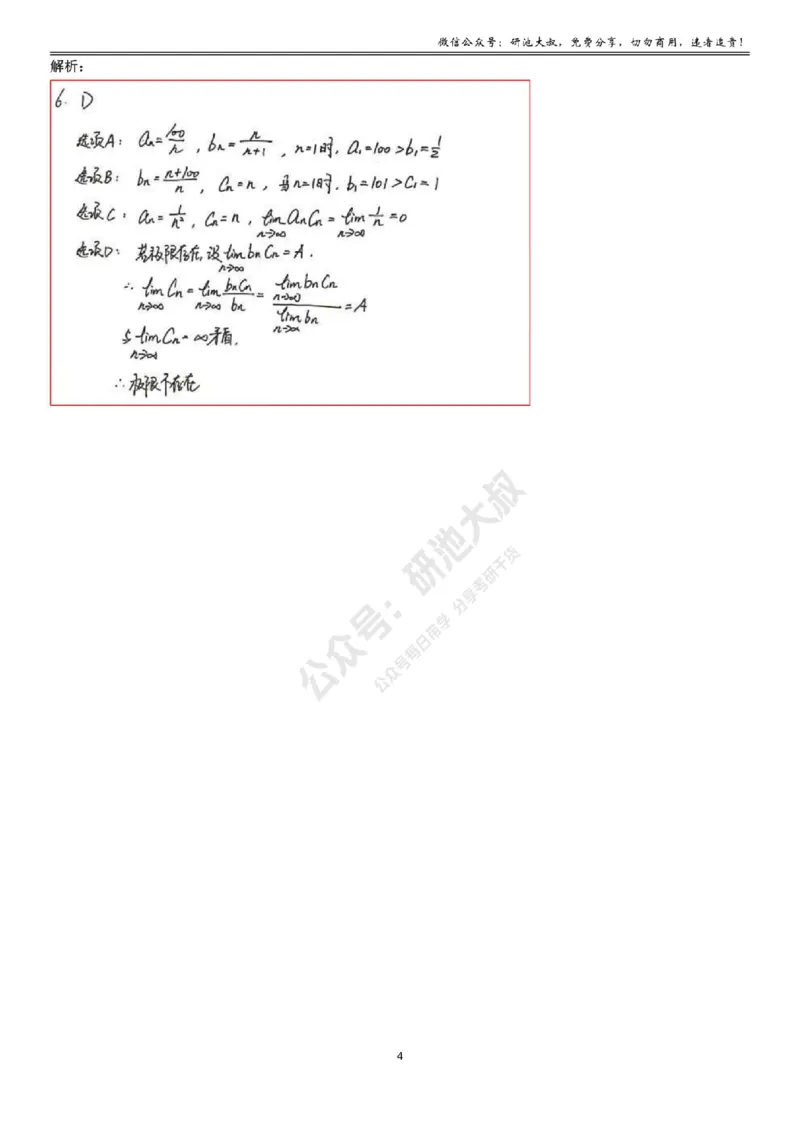 微信公众号：研池大叔，免费分享，切勿商用，违者追责！
解析：
6. D
选项A： aₙ=100/n ，bₙ= n/(n+1) ，n=1时，a₁=100>b₁=1/2
选项B： bₙ=(n+100)/n ，Cₙ=n ，当n=1时，b₁=101>C₁=1
选项C： aₙ=1/n² ，Cₙ=n ，lim(n→∞) aₙCₙ = lim(n→∞) 1/n =0
选项D： 若极限存在，设 lim(n→∞) bₙCₙ=A.
∴ lim(n→∞) Cₙ = lim(n→∞) bₙCₙ/bₙ = lim(n→∞) bₙCₙ / lim(n→∞) bₙ =A
与 lim(n→∞) Cₙ=∞矛盾.
∴ 极限不存在
公众号：研池大叔
公众号每日带学 分享考研干货
4